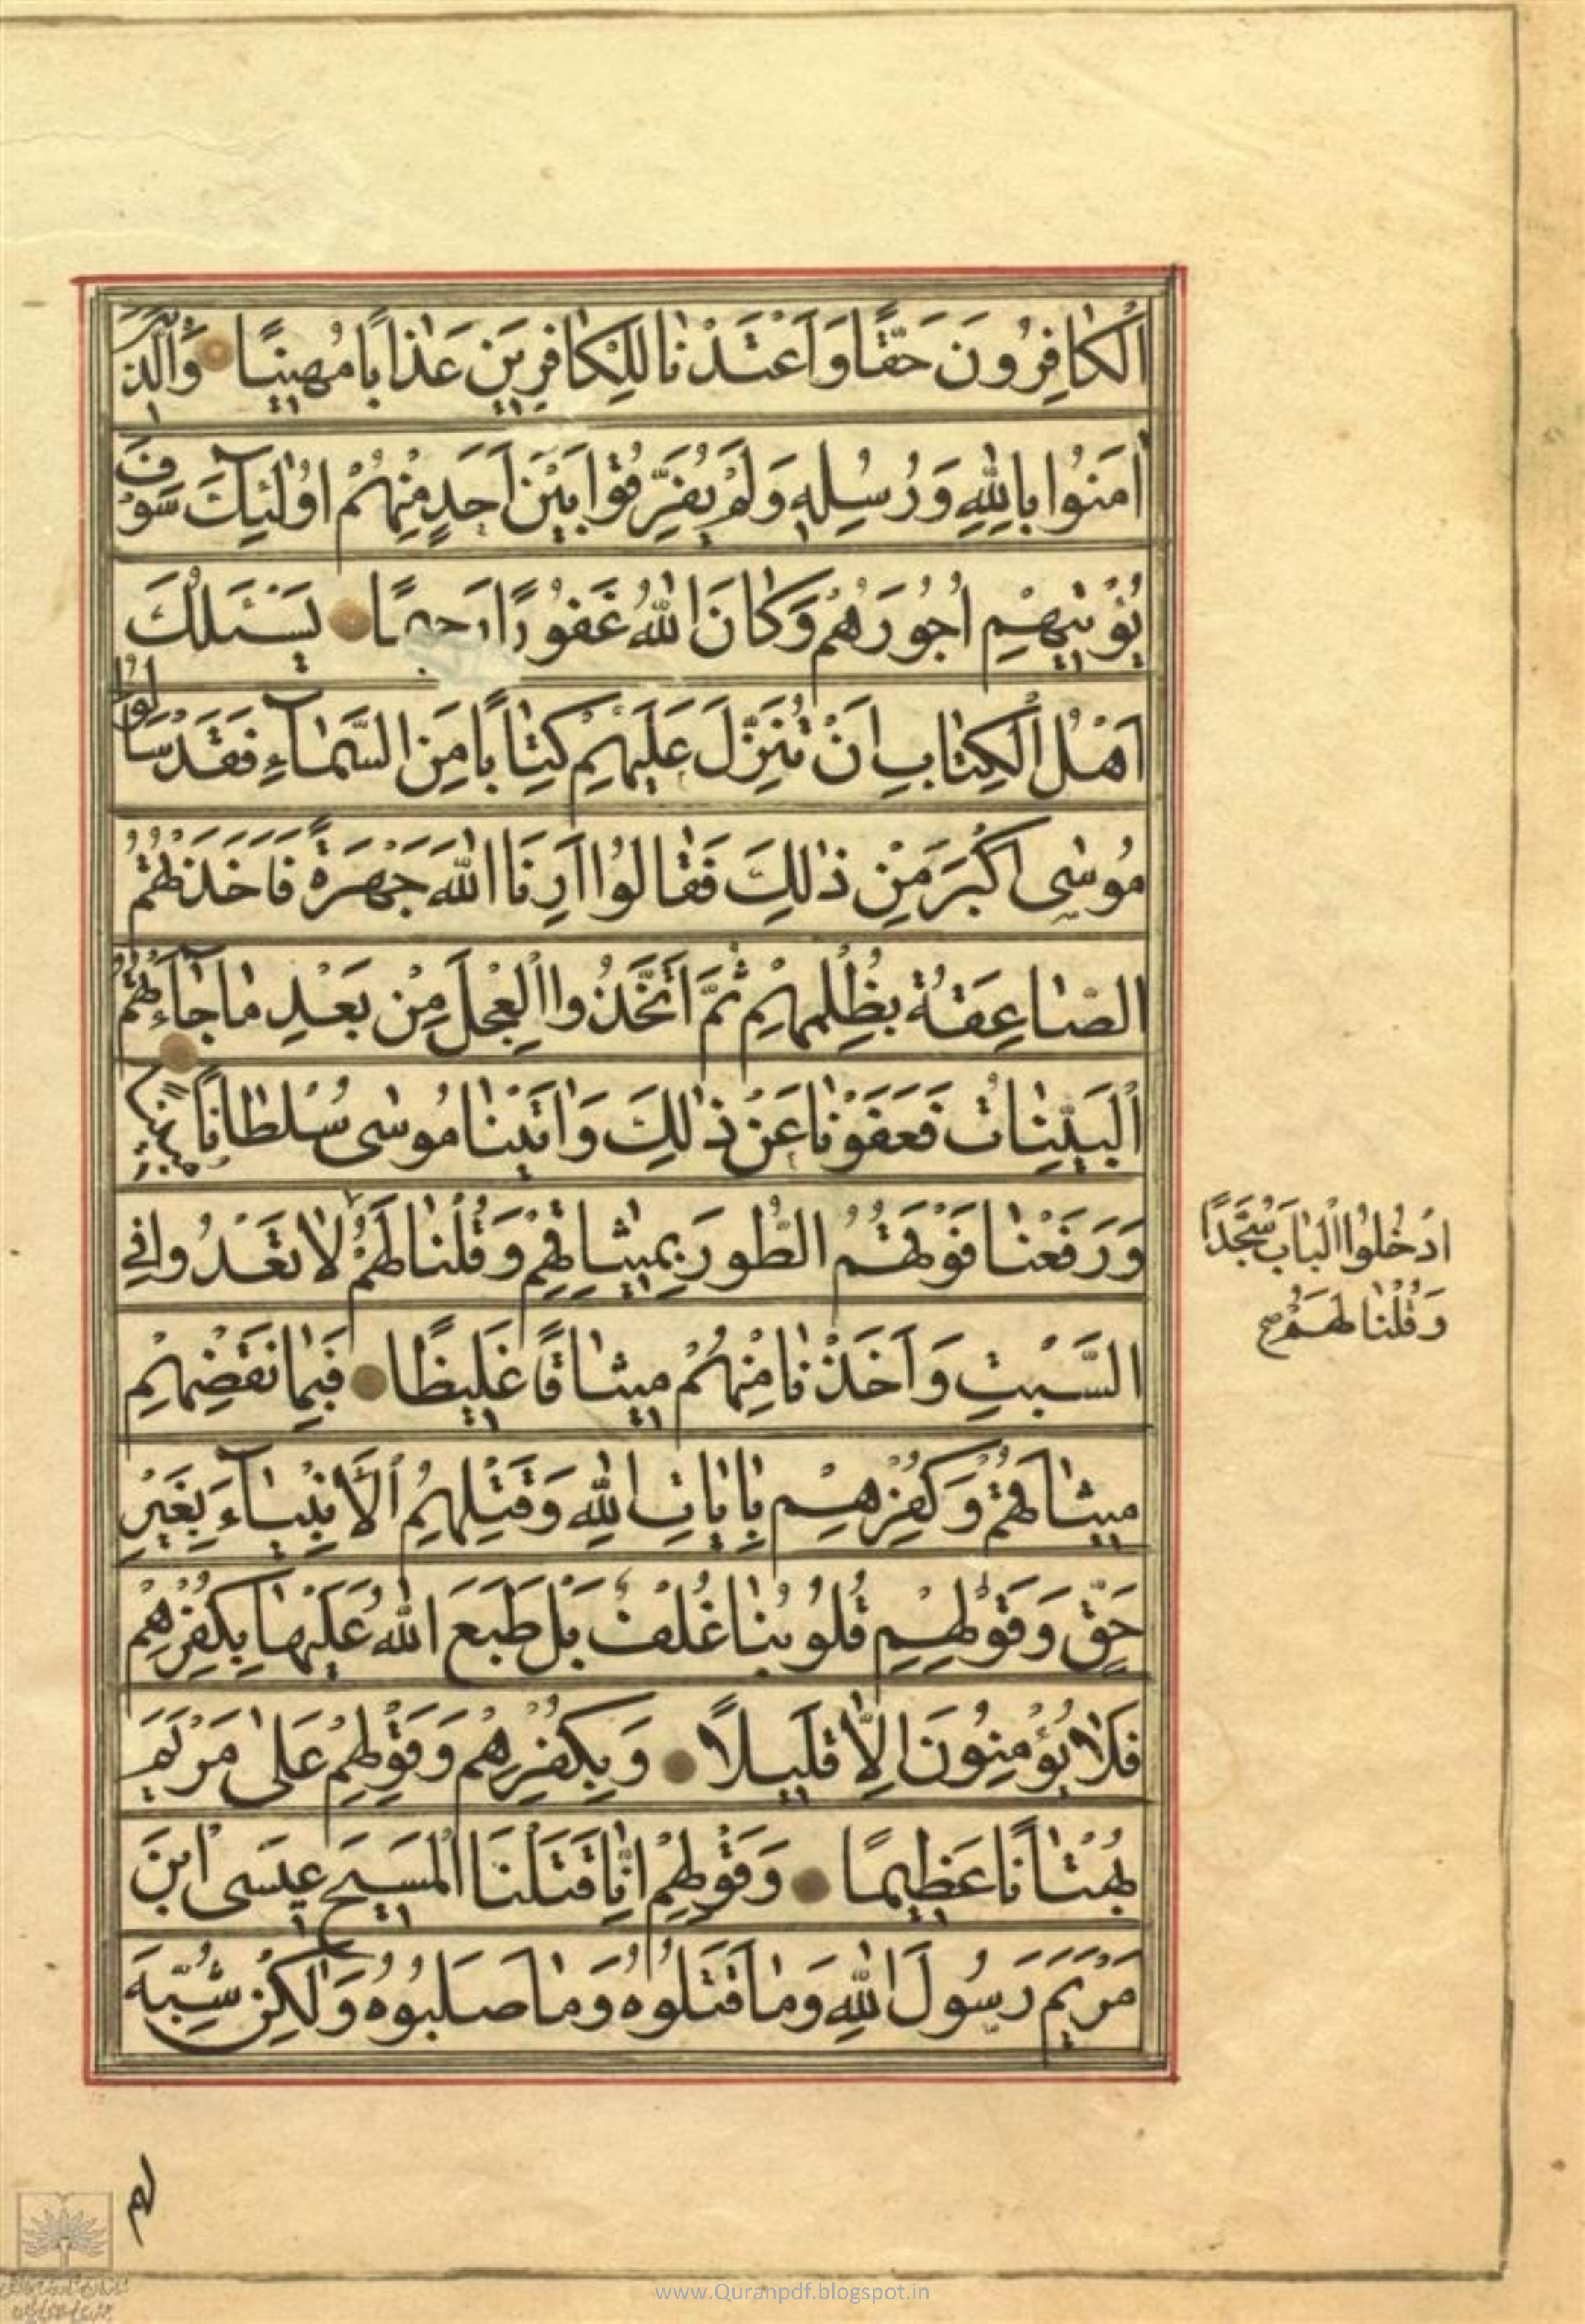 ٱلْكٰافِرُونَ حَقًّا وَاَعْتَدْنٰا لِلْكٰافِرِينَ عَذٰابًا مُهِينًا وَالَّذِينَ
اٰمَنُوا بِاللّٰهِ وَرُسُلِهِ وَلَمْ يُفَرِّقُوا بَيْنَ اَحَدٍ مِنْهُمْ اُولٰئِكَ سَوْفَ
يُؤْتِيهِمْ اُجُورَهُمْ وَكٰانَ اللّٰهُ غَفُورًا رَحِيمًا يَسْئَلُكَ
اَهْلُ الْكِتٰابِ اَنْ تُنَزِّلَ عَلَيْهِمْ كِتٰابًا مِنَ السَّمٰاءِ فَقَدْ سَاَلُوا
مُوسٰى اَكْبَرَ مِنْ ذٰلِكَ فَقٰالُوا اَرِنَا اللّٰهَ جَهْرَةً فَاَخَذَتْهُمُ
الصّٰاعِقَةُ بِظُلْمِهِمْ ثُمَّ اتَّخَذُوا الْعِجْلَ مِنْ بَعْدِ مٰا جٰاءَتْهُمُ
ٱلْبَيِّنٰاتُ فَعَفَوْنٰا عَنْ ذٰلِكَ وَاٰتَيْنٰا مُوسٰى سُلْطٰانًا مُبِينًا
وَرَفَعْنٰا فَوْقَهُمُ الطُّورَ بِمِيثٰاقِهِمْ وَقُلْنٰا لَهُمُ لٰا تَعْدُوا فِي
ادْخُلُوا الْبٰابَ سُجَّدًا
وَقُلْنٰا لَهُمْ صح
السَّبْتِ وَاَخَذْنٰا مِنْهُمْ مِيثٰاقًا غَلِيظًا فَبِمٰا نَقْضِهِمْ
مِيثٰاقَهُمْ وَكُفْرِهِمْ بِاٰيٰاتِ اللّٰهِ وَقَتْلِهِمُ ٱلْاَنْبِيٰاءَ بِغَيْرِ
حَقٍّ وَقَوْلِهِمْ قُلُوبُنٰا غُلْفٌ بَلْ طَبَعَ اللّٰهُ عَلَيْهٰا بِكُفْرِهِمْ
فَلٰا يُؤْمِنُونَ اِلّٰا قَلِيلًا وَبِكُفْرِهِمْ وَقَوْلِهِمْ عَلٰى مَرْيَمَ
بُهْتٰانًا عَظِيمًا وَقَوْلِهِمْ اِنّٰا قَتَلْنَا الْمَسِيحَ عِيسَى ابْنَ
مَرْيَمَ رَسُولَ اللّٰهِ وَمٰا قَتَلُوهُ وَمٰا صَلَبُوهُ وَلٰكِنْ شُبِّهَ
لهم
www.Quranpdf.blogspot.in